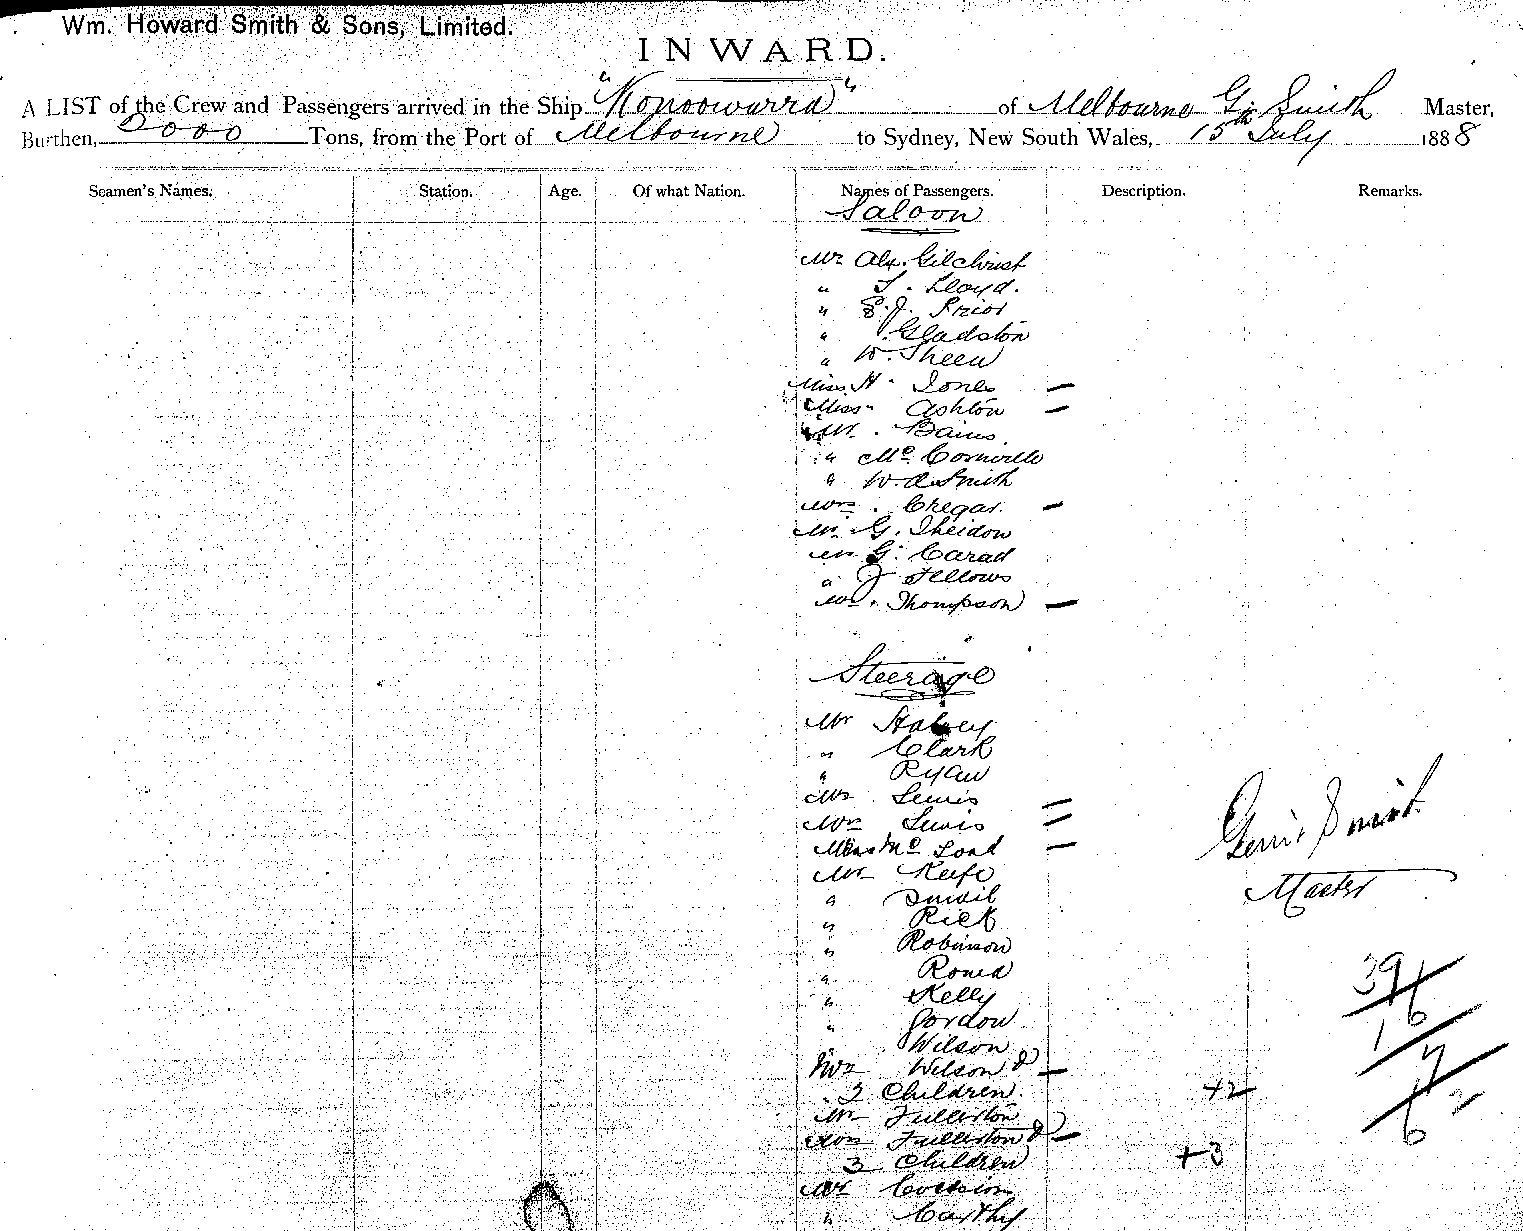 Wm. Howard Smith & Sons, Limited.
INWARD.
A LIST of the Crew and Passengers arrived in the Ship "Konoowarra" of Melbourne Smith Master,
Burthen, 2000 Tons, from the Port of Melbourne to Sydney, New South Wales, 15th July 1888
Seamen's Names. Station. Age. Of what Nation. Names of Passengers. Description. Remarks.
Saloon
Mr Alx. Gilchrist
" Lloyd.
" Prior
" Gladston
" W. Sheen
Miss H. Jones —
Miss " Ashton —
Mr. Bains.
" Mc
" W. A. Smith
Mrs. Chegar. —
Mr. G. Sheidon
G. Carad
" J Fellows
Mrs. Thompson —
Steerage
Mr
" Clark
" Ryan
Mr Lewis
Mrs Lewis
Miss Mc
Mr Keefe
"
" Rick
" Robinson
"
" Kelly
" Gordon
" Wilson
Mrs Wilson & —
2 Children +2
Mr Fullerton
Mrs Fullerton & —
3 Children +3
Mr
" Carthy
Smith
Master
39
6
1
6